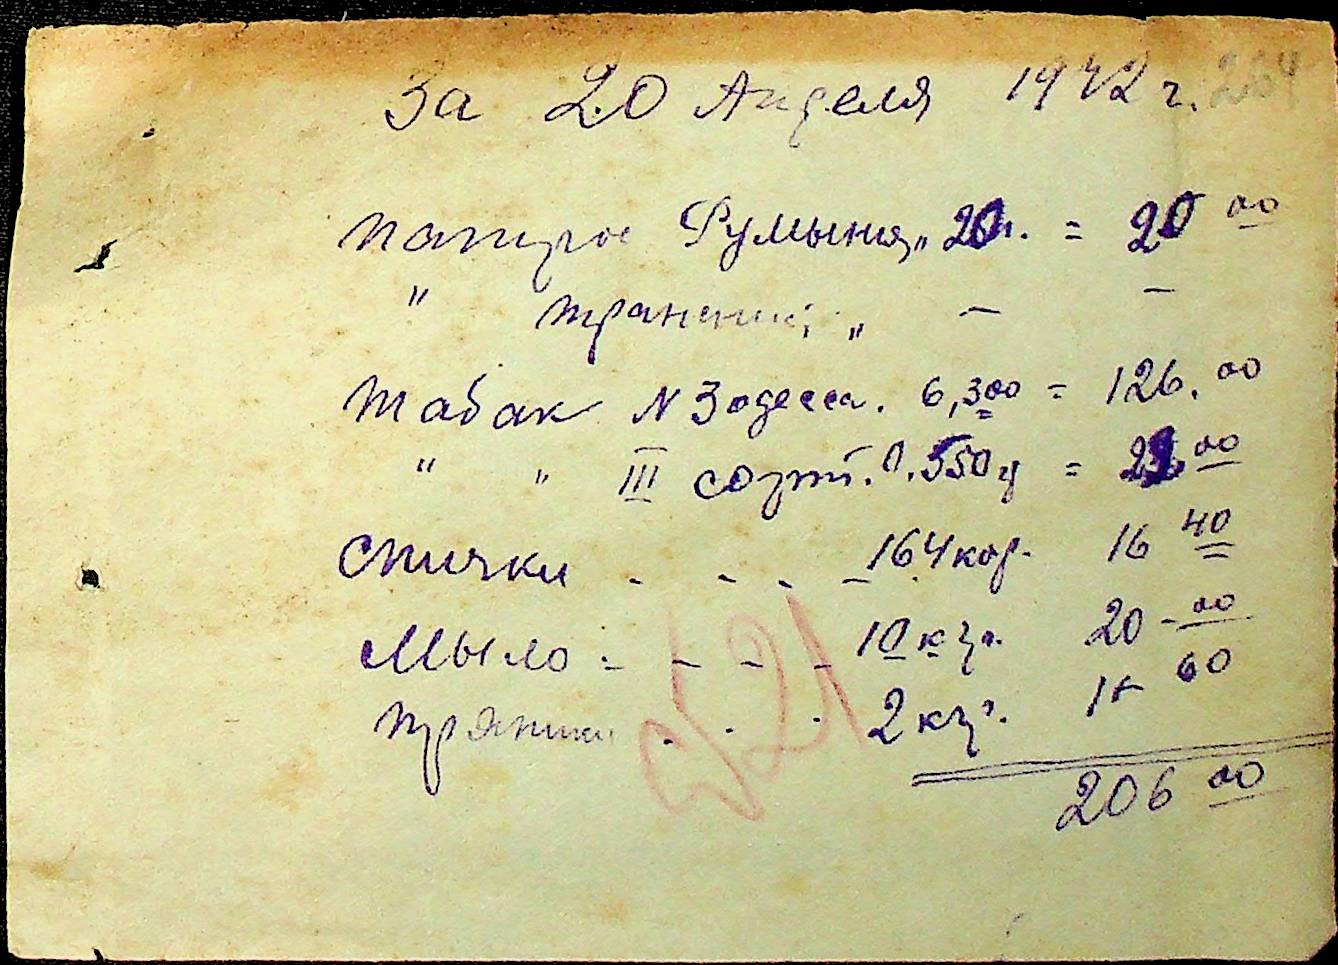 За 20 Апреля 1942 г. 264
Папирос Румыния „ 20п. = 20 00
" " — —
Табак N 3 одесса. 6,300 = 126.00
" " III сорт. 0.550 г = 22.00
Спички . - . - 164 кор. 16 40
Мыло - - - - 10 кгр. 20 - 00
Пряники . . . 2 кгр. 1 60
206 00
521